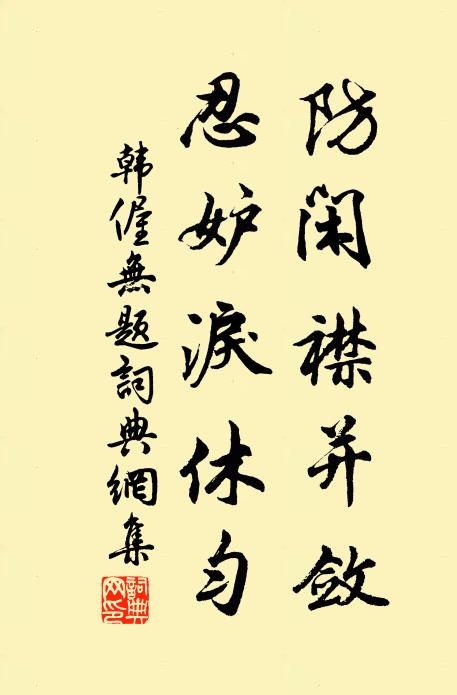 防闲襟并斂
忍妒淚休匀
韩偓無题詞典網集
詞典网印